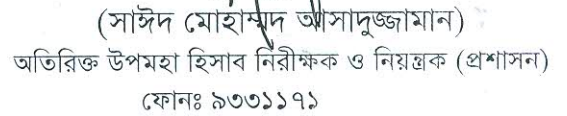 (সাঈদ মোহাম্মদ আসাদুজ্জামান)
অতিরিক্ত উপমহা হিসাব নিরীক্ষক ও নিয়ন্ত্রক (প্রশাসন)
ফোনঃ ৯৩৩১১৭১